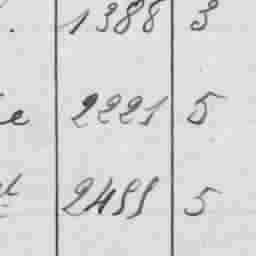 1388 3
e 2221 5
2455 5